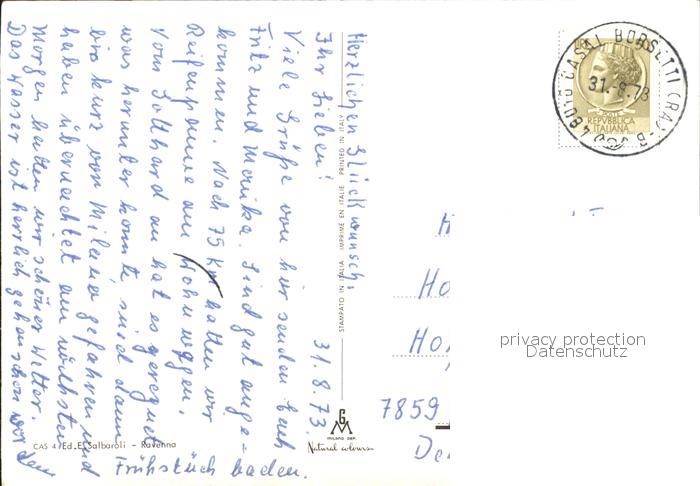 Herzlichen Glückwunsch,
Ihr Lieben! 31.8.73
Viele Grüße von hier senden Euch
Fritz und Monika. Sind gut ange-
kommen. Nach 75 Km hatten wir
Reifenpanne am Wohnwagen.
Vom Gotthard an hat es geregnet
was herunter konnte, sind dann
bis kurz vor Milano gefahren und
haben übernachtet am nächsten
Morgen hatten wir schönes Wetter.
Das Wasser ist herrlich gehen schon vor dem
Frühstück baden.
STAMPATO IN ITALIA IMPRIMÉ EN ITALIE PRINTED IN ITALY
CAS 4 Ed. E. Salbaroli - Ravenna
GM
MILANO DEP.
Natural colours
48010 CASAL BORSETTI (RA)-B
31.-8.73
REPVBBLICA
ITALIANA
H
Ho
Ho
7859
De
privacy protection
Datenschutz